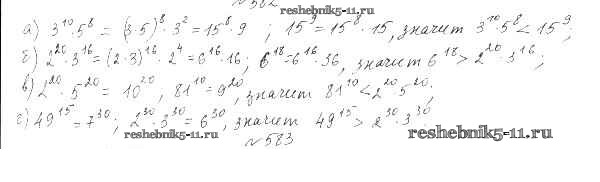 № 582
а) 3¹⁰·5⁸ = (3·5)⁸·3² = 15⁸·9 ; 15⁹ = 15⁸·15, значит 3¹⁰·5⁸ < 15⁹;
reshebnik5-11.ru
б) 2²⁰·3¹⁶ = (2·3)¹⁶·2⁴ = 6¹⁶·16; 6¹⁸ = 6¹⁶·36, значит 6¹⁸ > 2²⁰·3¹⁶;
в) 2²⁰·5²⁰ = 10²⁰, 81¹⁰ = 9²⁰, значит 81¹⁰ < 2²⁰·5²⁰;
г) 49¹⁵ = 7³⁰; 2³⁰·3³⁰ = 6³⁰, значит 49¹⁵ > 2³⁰·3³⁰.
reshebnik5-11.ru
reshebnik5-11.ru
№ 583